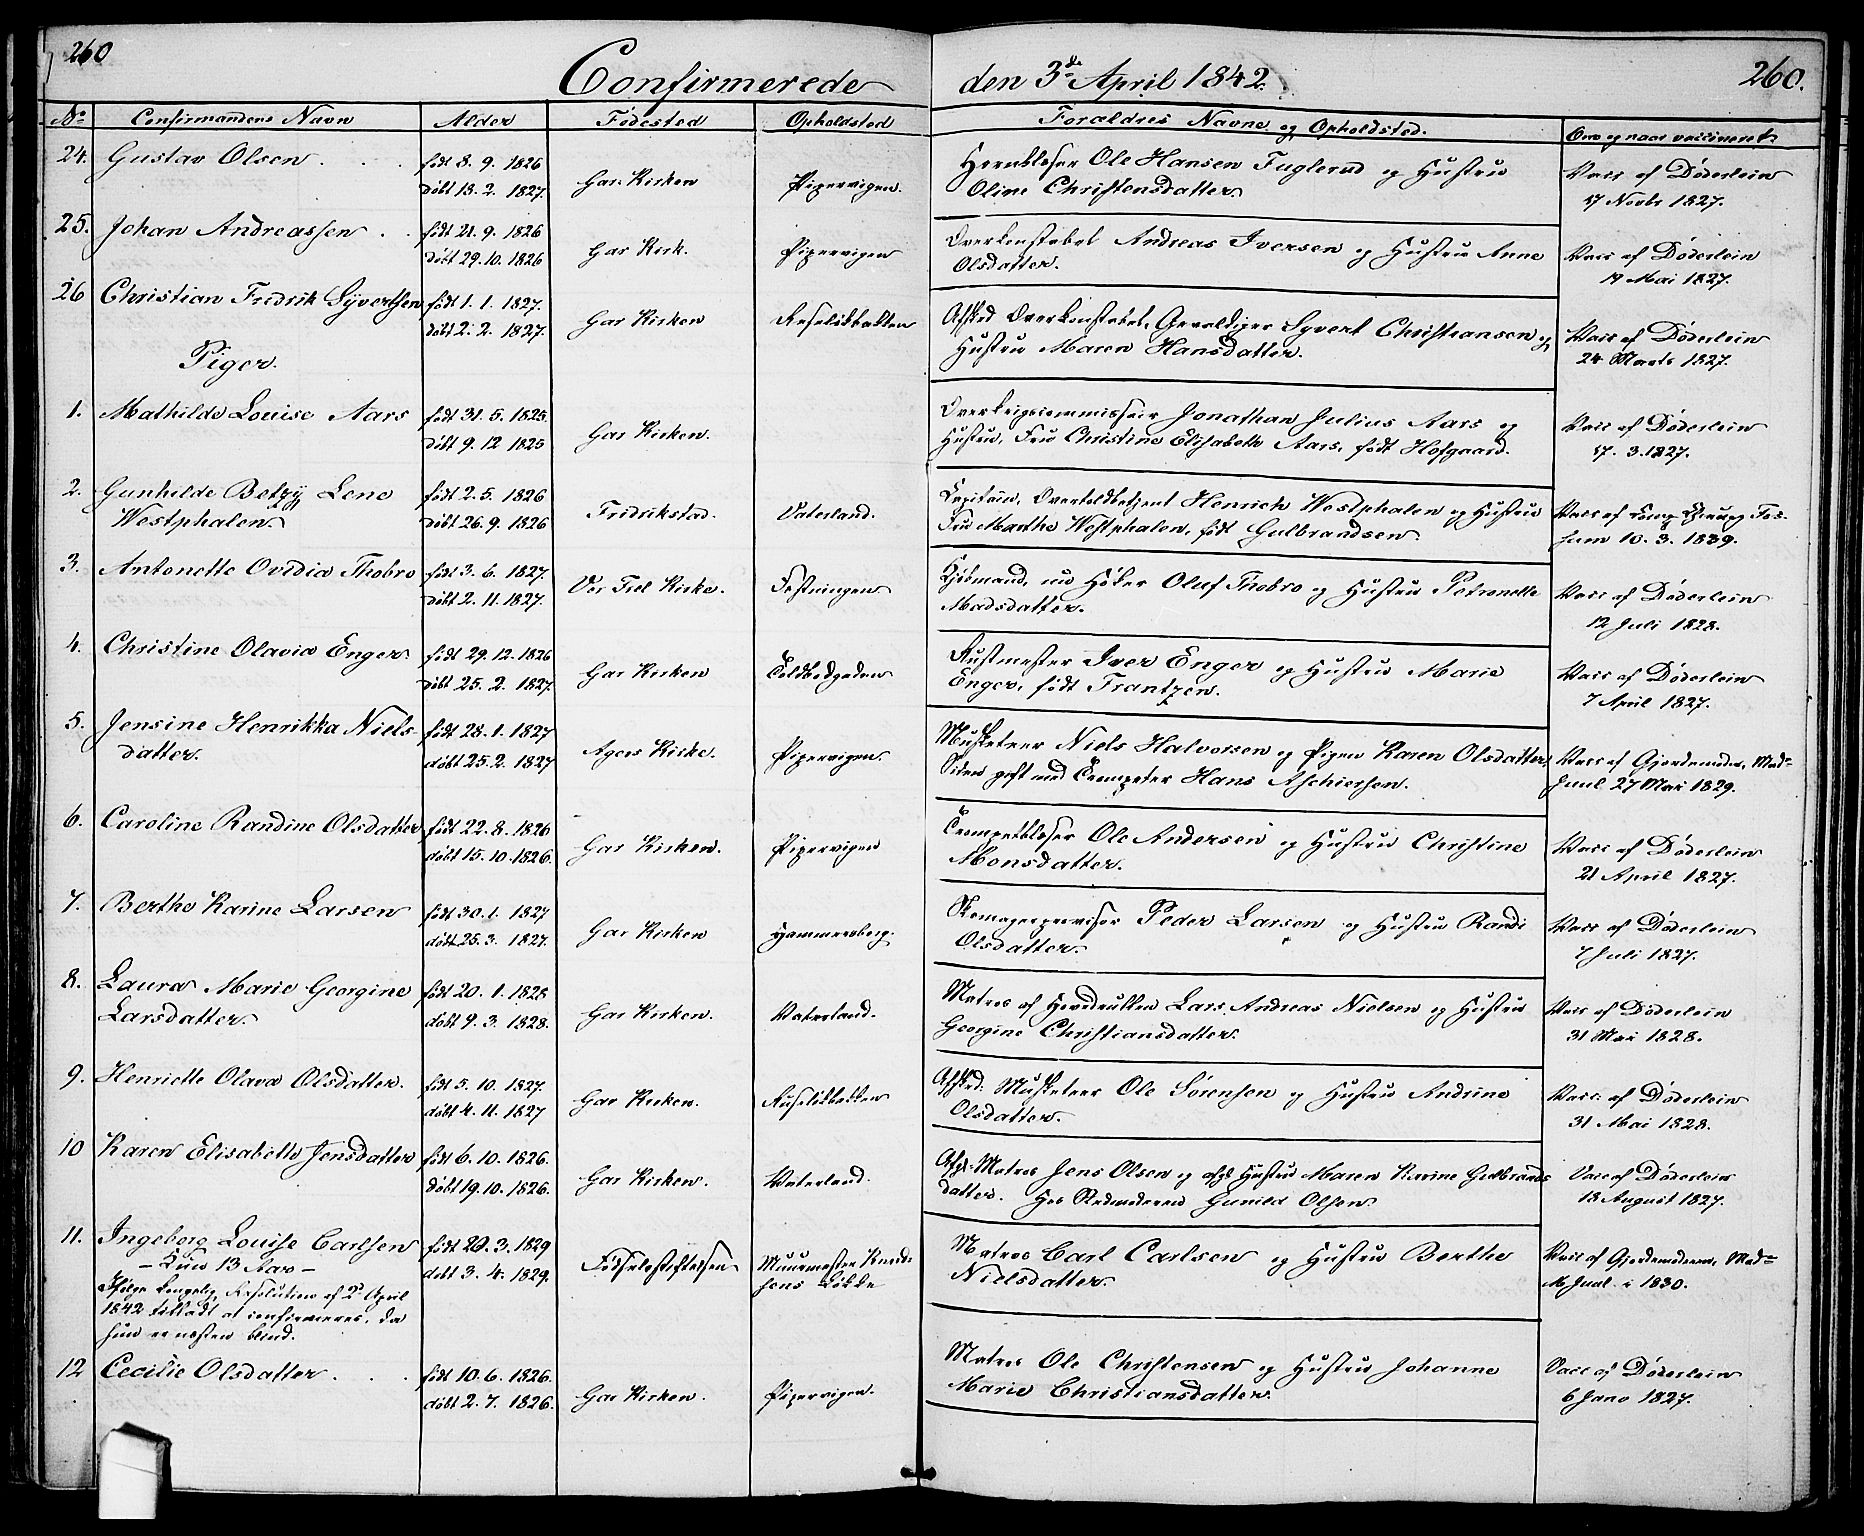 260
Confirmerede den 3de April 1842.
260.
No Confirmandens Navn Alder Fødested Opholdsted Forældres Navne og Opholdsted. Om og naar vaccineret
24. Gustav Olsen . . . født 8. 9. 1826 Hornblæser Ole Hansen Fuglerud og Hustru Vacc af Døderlein
døbt 18. 2. 1827. Gar. Kirken Pipervigen. Oline Christensdatter. 17 Novbr 1827.
25. Johan Andreassen . . født 21. 9. 1826 Overkonstabel Andreas Iversen og Hustru Anne Vacc af Døderlein
døbt 29. 10. 1826 Gar Kirk. Pipervigen Olsdatter. 19 Mai 1827.
26 Christian Fredrik Syvertsen født 1. 1. 1827. Afsked Overkonstabel, Gevaldiger Syvert Christiansen og Vacc af Døderlein
døbt 2. 2. 1827. Gar Kirken Ruseløkbakken Hustru Maren Hansdatter. 24 Marts 1827.
Piger.
1. Mathilde Louise Aars født 31. 5. 1825. Overkrigscommissair Jonathan Julius Aars og Vacc af Døderlein
døbt 9. 12 1825 Gar Kirken. Hustru, Fru Christine Elisabeth Aars, født Hofgaard. 17. 3. 1827.
2. Gunhilde Betzy Lene født 2. 5. 1826 Capitain, Overtoldbetjent Henrich Westphalen og Hustru Vacc af Comp Chirurg Fos-
Westphalen døbt 26. 9. 1826 Fridrikstad. Vaterland. Fru Marthe Westphalen, født Gulbrandsen. hum 10. 3. 1839.
3. Antonette Ovidia Thobro født 3. 6. 1827. Kjøbmand, nu Høker Oluf Thobro og Hustru Petronelle Vacc af Døderlein
døbt 2. 11. 1827. Vor Frel Kirke. Festningen Madsdatter. 12 Juli 1828.
4. Christine Olavia Enger født 29. 12. 1826 Rustmester Iver Enger og Hustru Marie Vacc af Døderlein
døbt 25. 2. 1827. Gar Kirken Toldbodgaden Enger, født Frantzen. 7 April 1827.
5. Jensine Henrikka Niels født 28. 1. 1827 Musketeer Niels Halvorsen og Pigen Karen Olsdatter, Vacc af Gjordemoder, Mad-
datter. døbt 25. 2. 1827 Agers Kirke. Pipervigen. Siden gift med Trompeter Hans Aschiersen. Juul 27 Mai 1829.
6. Caroline Randine Olsdatter født 22. 8. 1826 Trompetblæser Ole Andersen og Hustru Christine Vacc af Døderlein
døbt 15. 10. 1826. Gar Kirken. Pipervigen Monsdatter. 21 April 1827.
7. Berthe Karine Larsen født 30. 1. 1827 Skomager Peder Larsen og Hustru Randi Vacc af Døderlein
døbt 25. 3. 1827. Gar Kirken Hammersborg. Olsdatter. 7 Juli 1827.
8. Laura Marie Georgine født 20. 1. 1828 Matros af Hovedrullen Lars Andreas Nielsen og Hustru Vacc af Døderlein
Larsdatter. døbt 9. 3. 1828. Gar Kirken. Vaterland. Georgine Christiansdatter. 31 Mai 1828.
9. Henriette Olava Olsdatter. født 5. 10. 1827. Afsked: Musketeer Ole Sørensen og Hustru Andrine Vacc: af Døderlein
døbt 4. 11. 1827 Gar Kirken. Ruseløkbakken Olsdatter. 31 Mai 1828.
10 Karen Elisabeth Jensdatter født 6. 10. 1826. Afg. Matros Jens Olsen og afg. Hustru Maren Karine Gulbrands Vacc af Døderlein
døbt 19. 10. 1826. Gar Kirken. Vaterland. datter. Hos Stedmoderen Gunild Olsen. 18 August 1827.
11. Ingeborg Louise Carlsen født 20. 3. 1829 Matros Carl Carlsen og Hustru Berthe Vacc af Gjordemoderen, Mad-
- Kun 13 Aar - døbt 3. 4. 1829. Fødselsstiftelsen Muurmester Knud- Nielsdatter. Juul i 1830.
Ifølge kongelig Resolution af 2d April sens Løkke
1842 tilladt at confirmeres, da
hun er næsten blind.
12 Cecilie Olsdatter . . . født 10. 6. 1826. Matros Ole Christensen og Hustru Johanne Vacc af Døderlein
døbt 2. 7. 1826. Gar Kirken. Pipervigen. Marie Christiansdatter. 6 Jano 1827.